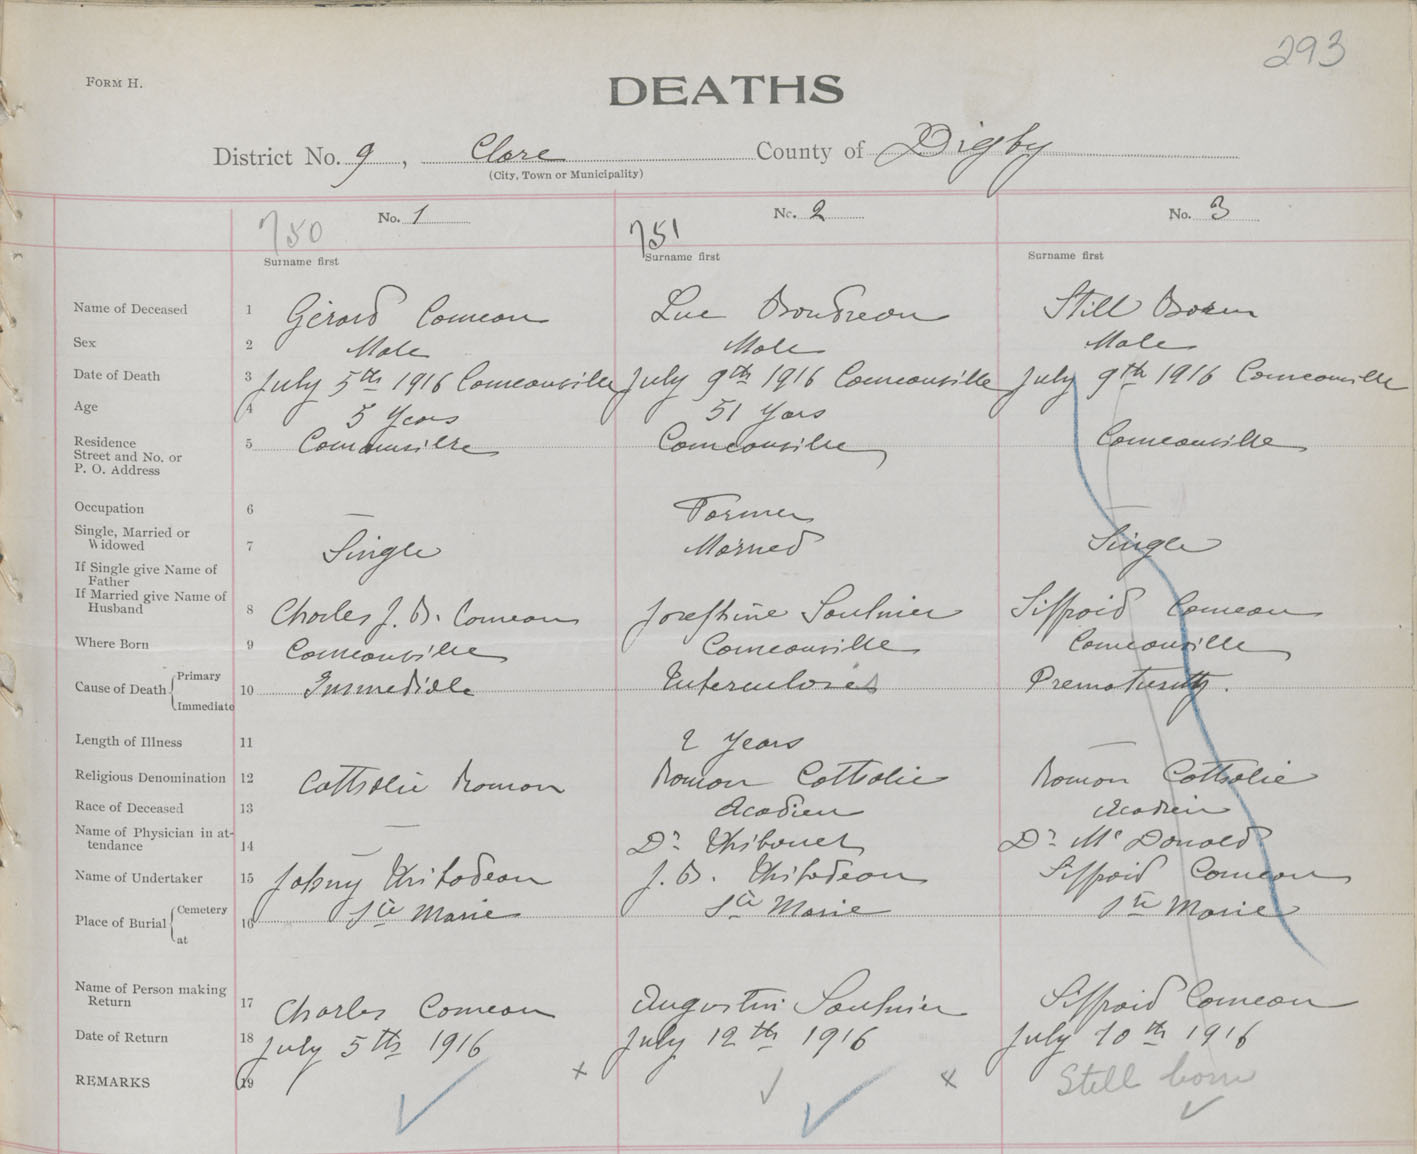 293
FORM H.
DEATHS
District No. 9, Clare County of Digby
(City, Town or Municipality)
750 No. 1 751 No. 2 No. 3
Surname first Surname first Surname first
Name of Deceased 1 Gérard Comeau Luc Boudreau Still Born
Sex 2 Male Male Male
Date of Death 3 July 5th 1916 Comeauville July 9th 1916 Comeauville July 9th 1916 Comeauville
Age 4 5 Years 51 Yars
Residence
Street and No. or 5 Comeauville Comeauville Comeauville
P. O. Address
Occupation 6 — Farmer —
Single, Married or
Widowed 7 Single Married Single
If Single give Name of
Father
If Married give Name of
Husband 8 Charles J. B. Comeau Josephine Saulnier Siffroid Comeau
Where Born 9 Comeauville Comeauville Comeauville
Cause of Death { Primary
Immediate 10 Immediate Tuberculosis Prematurity.
Length of Illness 11 2 Years —
Religious Denomination 12 Catholic Roman Roman Catholic Roman Catholic
Race of Deceased 13 — Acadien Acadien
Name of Physician in at-
tendance 14 — Dr Dr McDonald
Name of Undertaker 15 Johny Thibodeau J. B. Thibodeau Siffroid Comeau
Place of Burial { Cemetery
at 16 Ste Marie Ste Marie Ste Marie
Name of Person making
Return 17 Charles Comeau Augustin Saulnier Siffroid Comeau
Date of Return 18 July 5th 1916 July 12th 1916 July 10th 1916
REMARKS 19 x x Still born